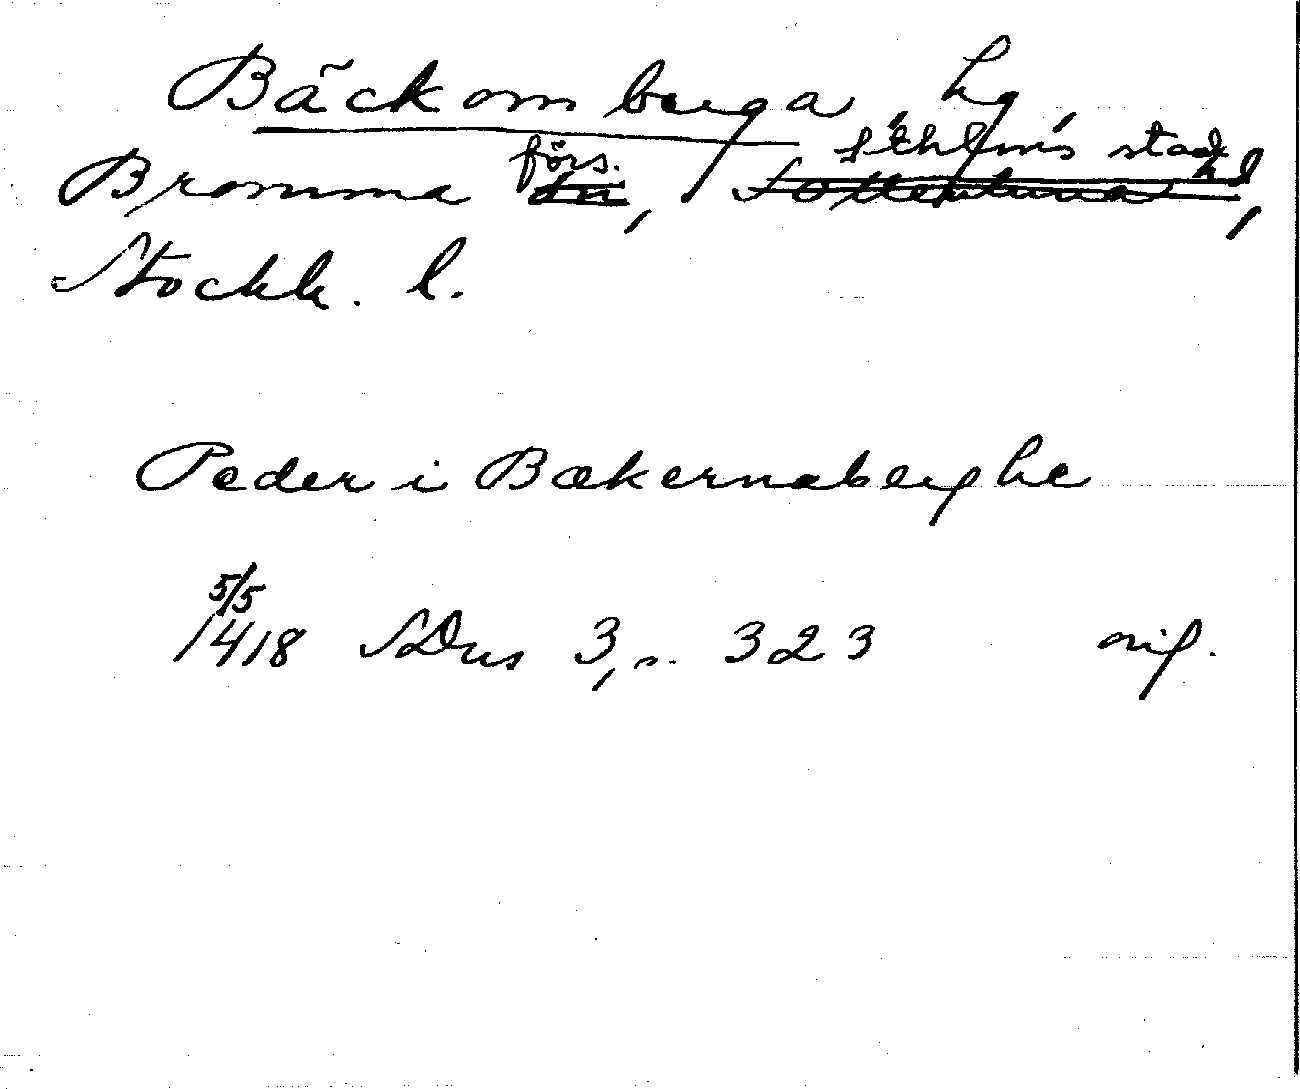 Bäckomberga, hg,
Bromma förs., Sthlms stad,
Stockh. l.
Peder i Bækernaberghe
5/5
1418 SDns 3, s. 323 orig.